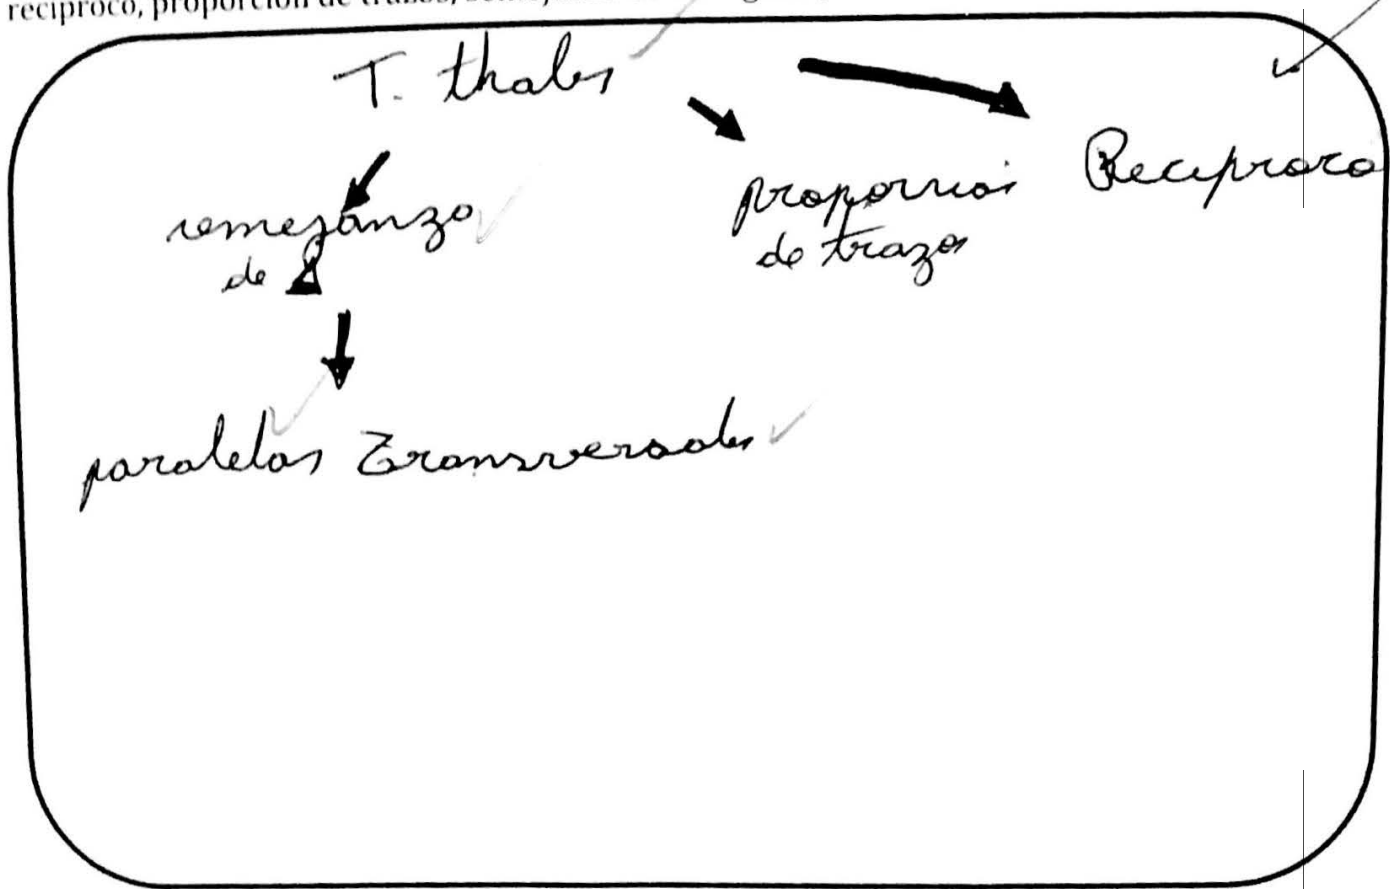 recíproco, proporción de trazos,
T. thales
semejanza
de
proporción
de trazos
Reciproco
paralelas Transversales